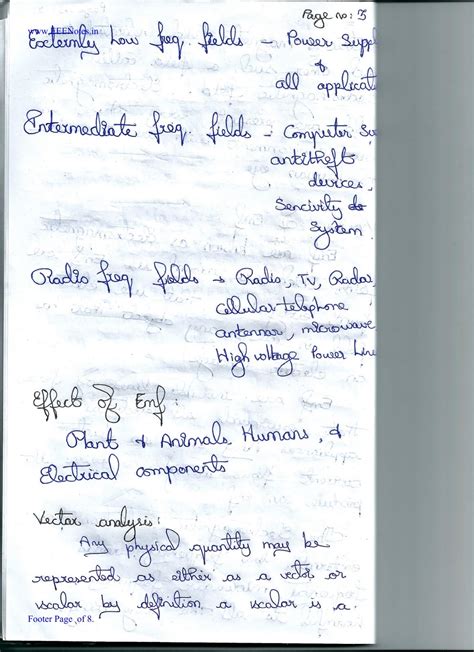 Page no: 3
www.EEENotes.in
Extermly Low freq. fields - Power Suppl
&
all applicat
Entermediate freq. fields - Computer Sc
antitheft
devices,
Sencivity de
System.
Radio freq fields → Radio, TV, Radar
cellular-telephone
antennar, microwave
High voltage Power Line
Effect of Emf:
Plant & Animals, Humans, &
Electrical components
Vector analysis:
Any physical quantity may be
represented as either as a vector or
scalar by definition a scalar is a
Footer Page of 8.